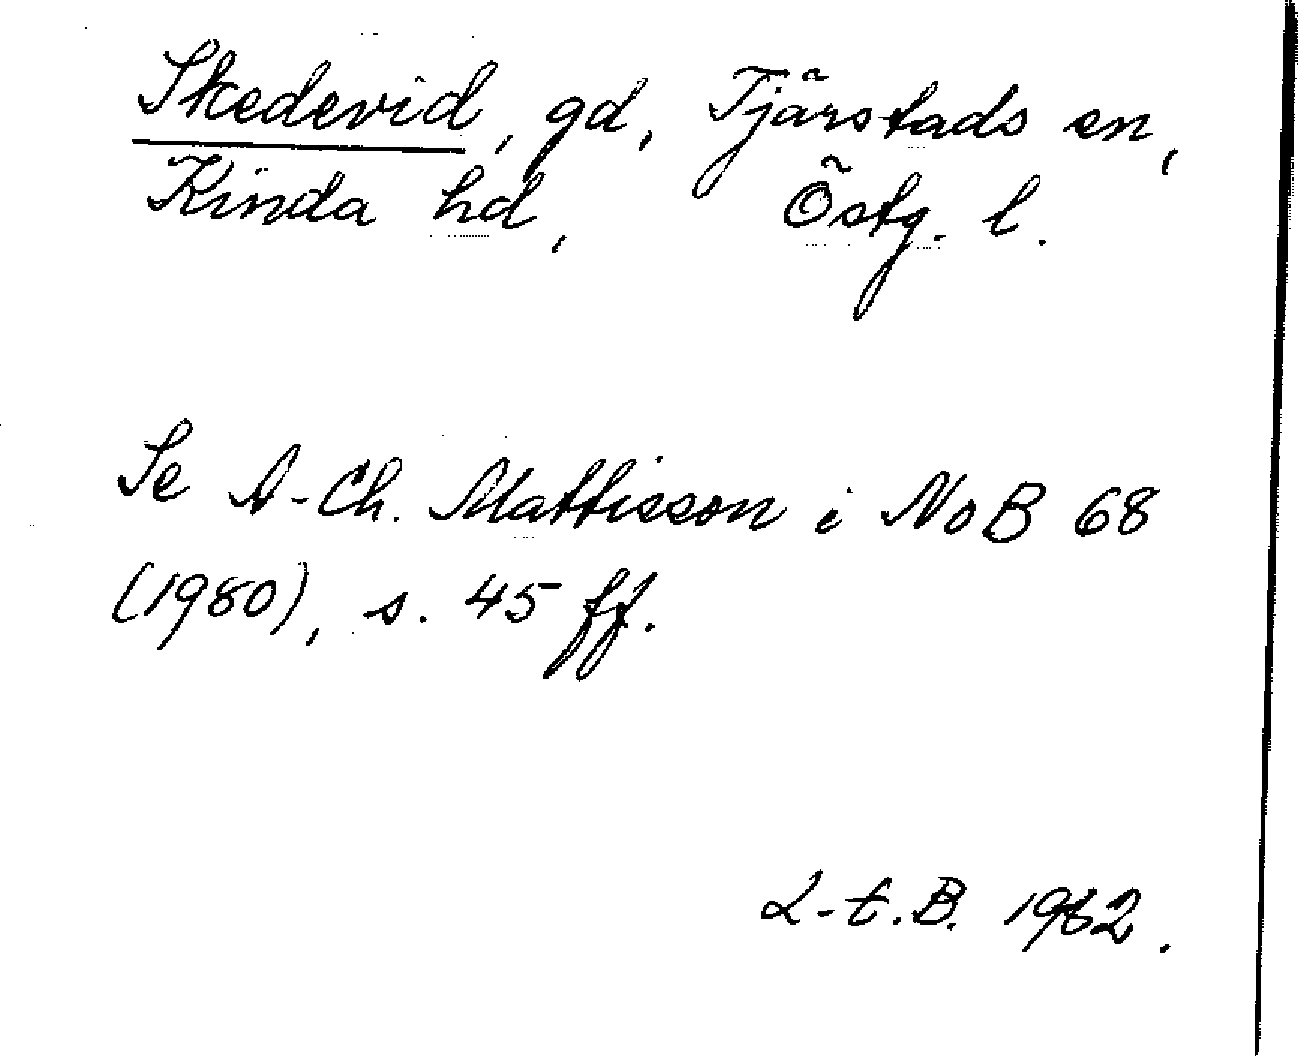 Skedevid, gd, Tjärstads sn,
Kinda hd, Östg. l.
Se A-Ch. Mattisson i NoB 68
(1980), s. 45 ff.
L-E.B. 1982.